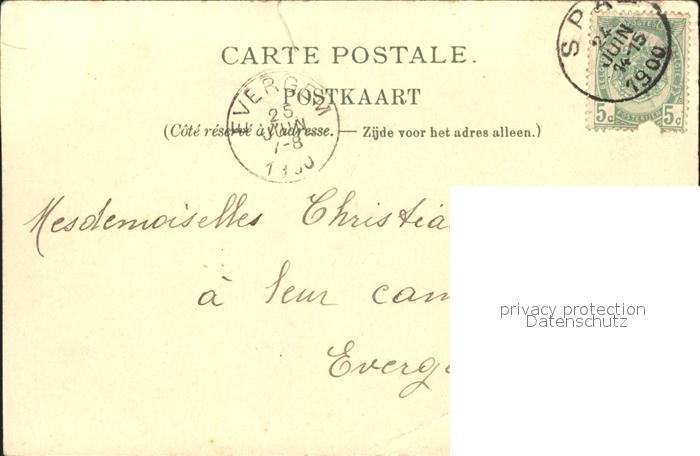 CARTE POSTALE.
POSTKAART
(Côté réservé à l'adresse. — Zijde voor het adres alleen.)
SPA
24
JUIN
14-15
1900
5c 5c
EVERGEM
25
JUIN
7-8
Mesdemoiselles
à leur
privacy protection
Datenschutz